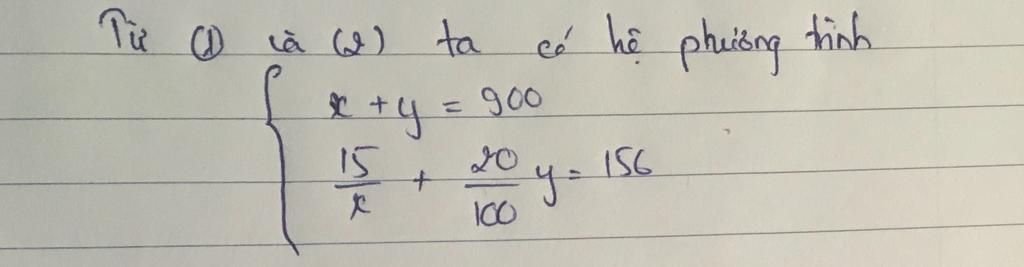 Từ (1) và (2) ta có hệ phương trình
x + y = 900
15/x + 20/100 y = 156